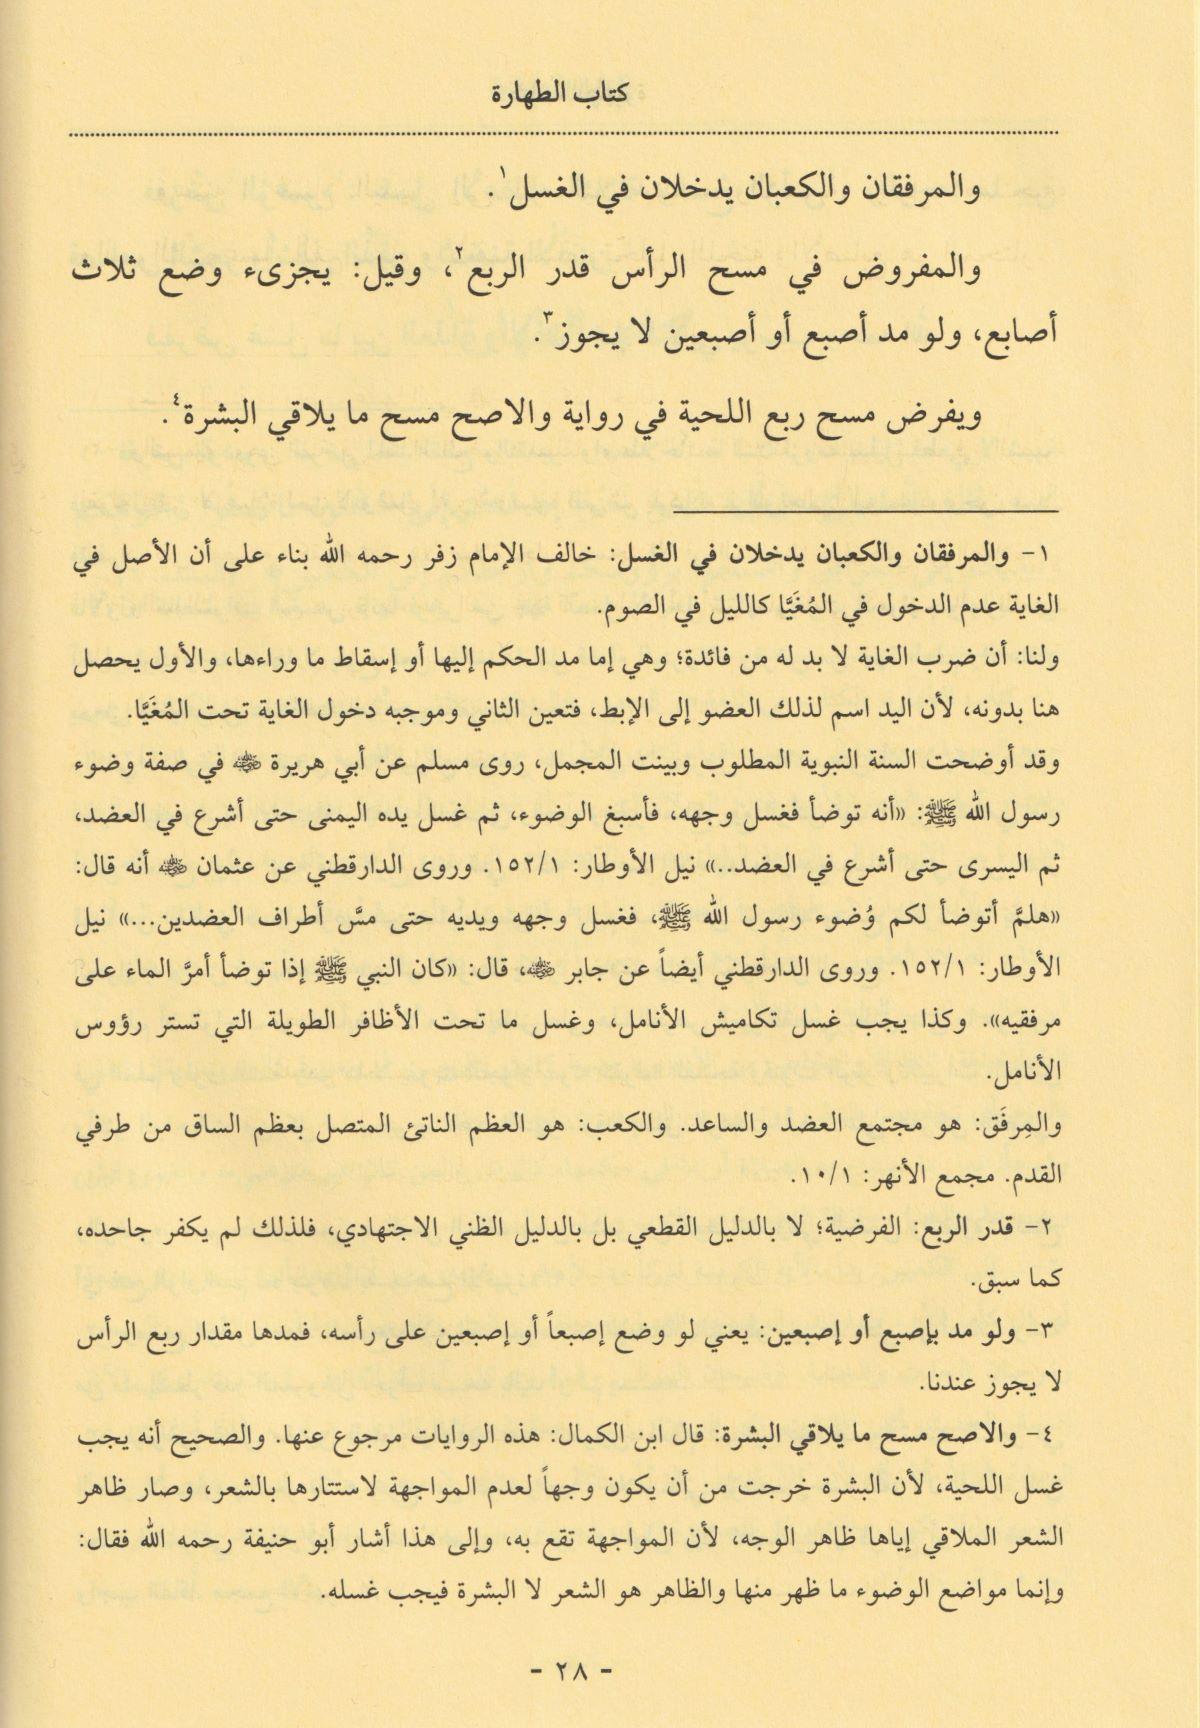 كتاب الطهارة
والمرفقان والكعبان يدخلان في الغسل١.
والمفروض في مسح الرأس قدر الربع٢، وقيل: يجزىء وضع ثلاث
أصابع، ولو مد أصبع أو أصبعين لا يجوز٣.
ويفرض مسح ربع اللحية في رواية والاصح مسح ما يلاقي البشرة٤.
١- والمرفقان والكعبان يدخلان في الغسل: خالف الإمام زفر رحمه الله بناء على أن الأصل في
الغاية عدم الدخول في المُغَيَّا كالليل في الصوم.
ولنا: أن ضرب الغاية لا بد له من فائدة؛ وهي إما مد الحكم إليها أو إسقاط ما وراءها، والأول يحصل
هنا بدونه، لأن اليد اسم لذلك العضو إلى الإبط، فتعين الثاني وموجبه دخول الغاية تحت المُغَيَّا.
وقد أوضحت السنة النبوية المطلوب وبينت المجمل، روى مسلم عن أبي هريرة رضي الله عنه في صفة وضوء
رسول الله ﷺ: «أنه توضأ فغسل وجهه، فأسبغ الوضوء، ثم غسل يده اليمنى حتى أشرع في العضد،
ثم اليسرى حتى أشرع في العضد..» نيل الأوطار: ١٥٢/١. وروى الدارقطني عن عثمان رضي الله عنه أنه قال:
«هلمَّ أتوضأ لكم وُضوء رسول الله ﷺ، فغسل وجهه ويديه حتى مسَّ أطراف العضدين...» نيل
الأوطار: ١٥٢/١. وروى الدارقطني أيضاً عن جابر رضي الله عنه، قال: «كان النبي ﷺ إذا توضأ أمرَّ الماء على
مرفقيه». وكذا يجب غسل تكاميش الأنامل، وغسل ما تحت الأظافر الطويلة التي تستر رؤوس
الأنامل.
والمِرفَق: هو مجتمع العضد والساعد. والكعب: هو العظم الناتئ المتصل بعظم الساق من طرفي
القدم. مجمع الأنهر: ١٠/١.
٢- قدر الربع: الفرضية؛ لا بالدليل القطعي بل بالدليل الظني الاجتهادي، فلذلك لم يكفر جاحده،
كما سبق.
٣- ولو مد بإصبع أو إصبعين: يعني لو وضع إصبعاً أو إصبعين على رأسه، فمدها مقدار ربع الرأس
لا يجوز عندنا.
٤- والاصح مسح ما يلاقي البشرة: قال ابن الكمال: هذه الروايات مرجوع عنها. والصحيح أنه يجب
غسل اللحية، لأن البشرة خرجت من أن يكون وجهاً لعدم المواجهة لاستتارها بالشعر، وصار ظاهر
الشعر الملاقي إياها ظاهر الوجه، لأن المواجهة تقع به، وإلى هذا أشار أبو حنيفة رحمه الله فقال:
وإنما مواضع الوضوء ما ظهر منها والظاهر هو الشعر لا البشرة فيجب غسله.
- ٢٨ -